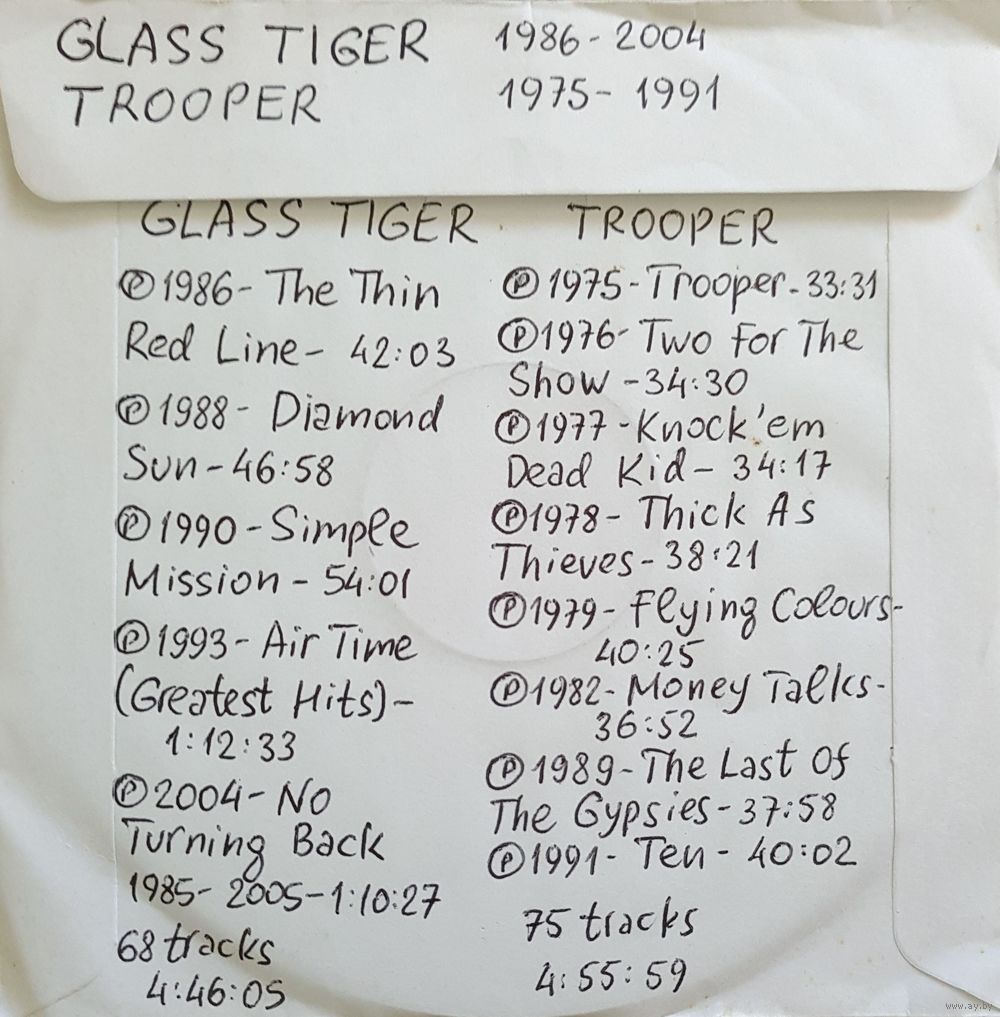 GLASS TIGER 1986-2004
TROOPER 1975-1991
GLASS TIGER
Ⓟ1986-The Thin
Red Line- 42:03
Ⓟ1988- Diamond
Sun-46:58
Ⓟ1990-Simple
Mission-54:01
Ⓟ1993-Air Time
(Greatest Hits)-
1:12:33
Ⓟ2004-No
Turning Back
1985-2005-1:10:27
68 tracks
4:46:05
TROOPER
Ⓟ1975-Trooper-33:31
Ⓟ1976-Two For The
Show-34:30
Ⓟ1977-Knock'em
Dead Kid-34:17
Ⓟ1978-Thick As
Thieves-38:21
Ⓟ1979-Flying Colours-
40:25
Ⓟ1982-Money Talks-
36:52
Ⓟ1989-The Last Of
The Gypsies-37:58
Ⓟ1991-Ten-40:02
75 tracks
4:55:59
www.ay.by